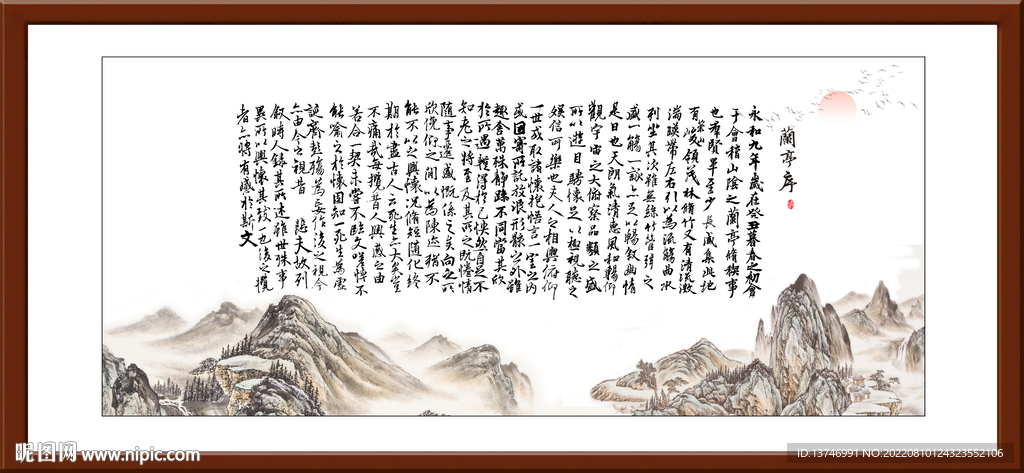 蘭亭序
永和九年歲在癸丑暮春之初會
于會稽山陰之蘭亭脩稧事
也羣賢畢至少長咸集此地
有崇山峻領茂林脩竹又有清流激
湍暎帶左右引以為流觴曲水
列坐其次雖無絲竹管弦之
盛一觴一詠亦足以暢敘幽情
是日也天朗氣清惠風和暢仰
觀宇宙之大俯察品類之盛
所以遊目騁懷足以極視聽之
娛信可樂也夫人之相與俯仰
一世或取諸懷抱悟言一室之內
或因寄所託放浪形骸之外雖
趣舍萬殊靜躁不同當其欣
於所遇暫得於己快然自足不
知老之將至及其所之既惓情
隨事遷感慨係之矣向之所
欣俛仰之間以為陳迹猶不
能不以之興懷況脩短隨化終
期於盡古人云死生亦大矣豈
不痛哉每攬昔人興感之由
若合一契未嘗不臨文嗟悼不
能喻之於懷固知一死生為虛
誕齊彭殤為妄作後之視今
亦由今之視昔 悲夫故列
敘時人錄其所述雖世殊事
異所以興懷其致一也後之攬
者亦將有感於斯文
昵图网 www.nipic.com
ID:13746991 NO:20220810124323552106